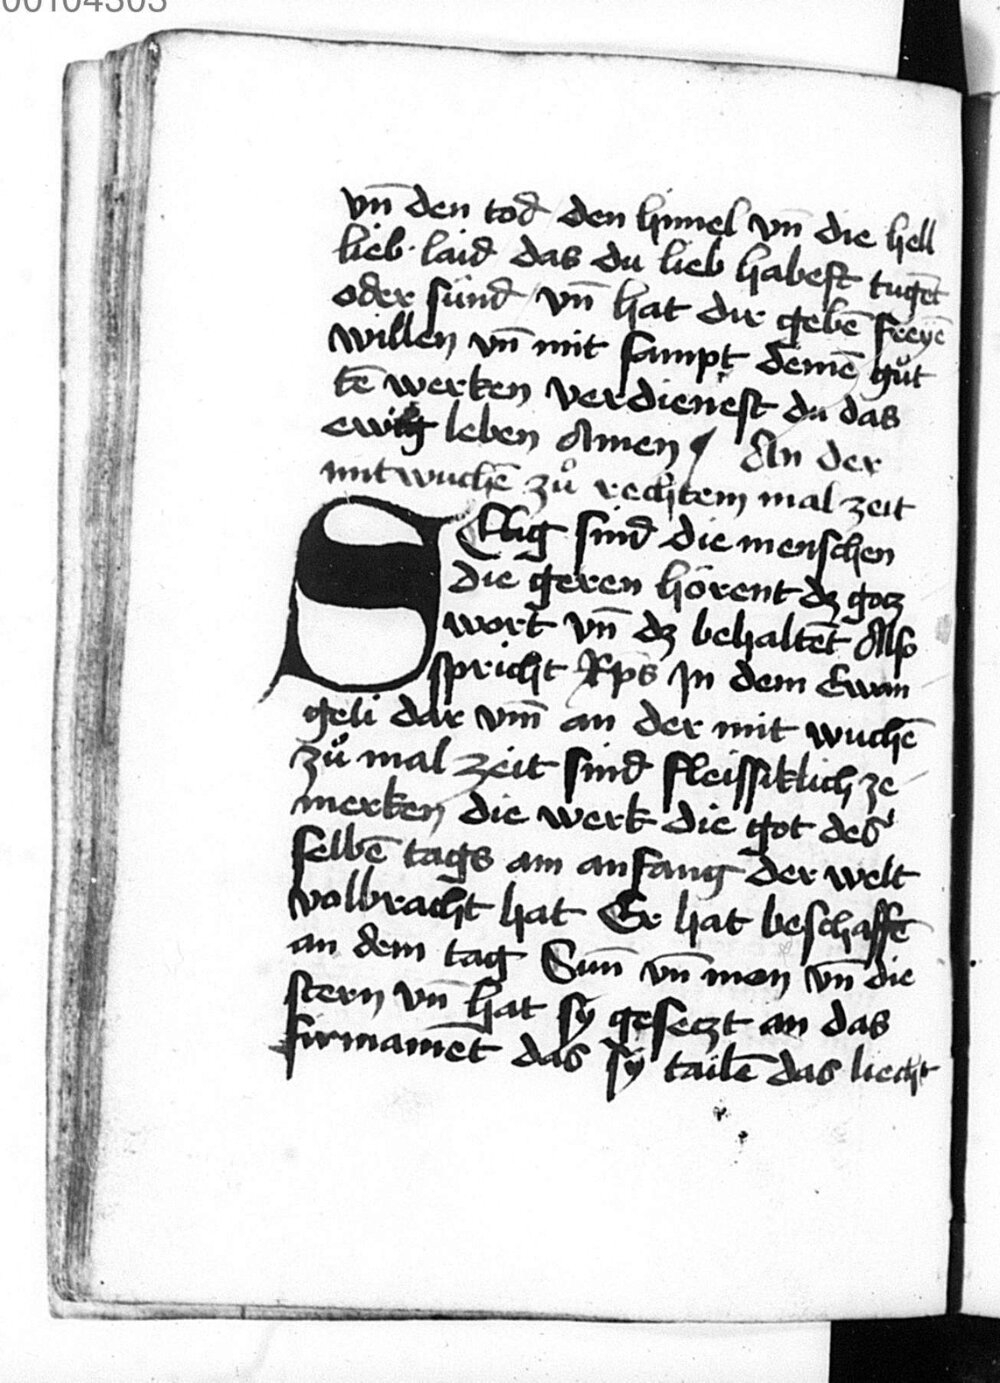 00104303
vn̄ den tod den him̄el vn̄ die hell
lieb · laid das du lieb habest tugēt
oder sünd vn̄ hat dir gebē freyē
willen vn̄ mit sampt deinē gůt
tē werken verdienest du das
ewig leben Amen An der
mitwuchē zů rechtem mal zeit
SElig sind die menschen
die geren hörent dz gotz
wort vn̄ dz behaltēt Also
spricht xp̄s in dem Ewan
geli dar vm̄ an der mit wuchē
zů mal zeit sind fleissiklich ze
merken die werk die got des
selbē tags am anfang der welt
volbracht hat Er hat beschaffē
an dem tag Sun̄ vn̄ mon vn̄ die
stern vn̄ hat sy gesetzt an das
firmamēt das sy tailē das liecht